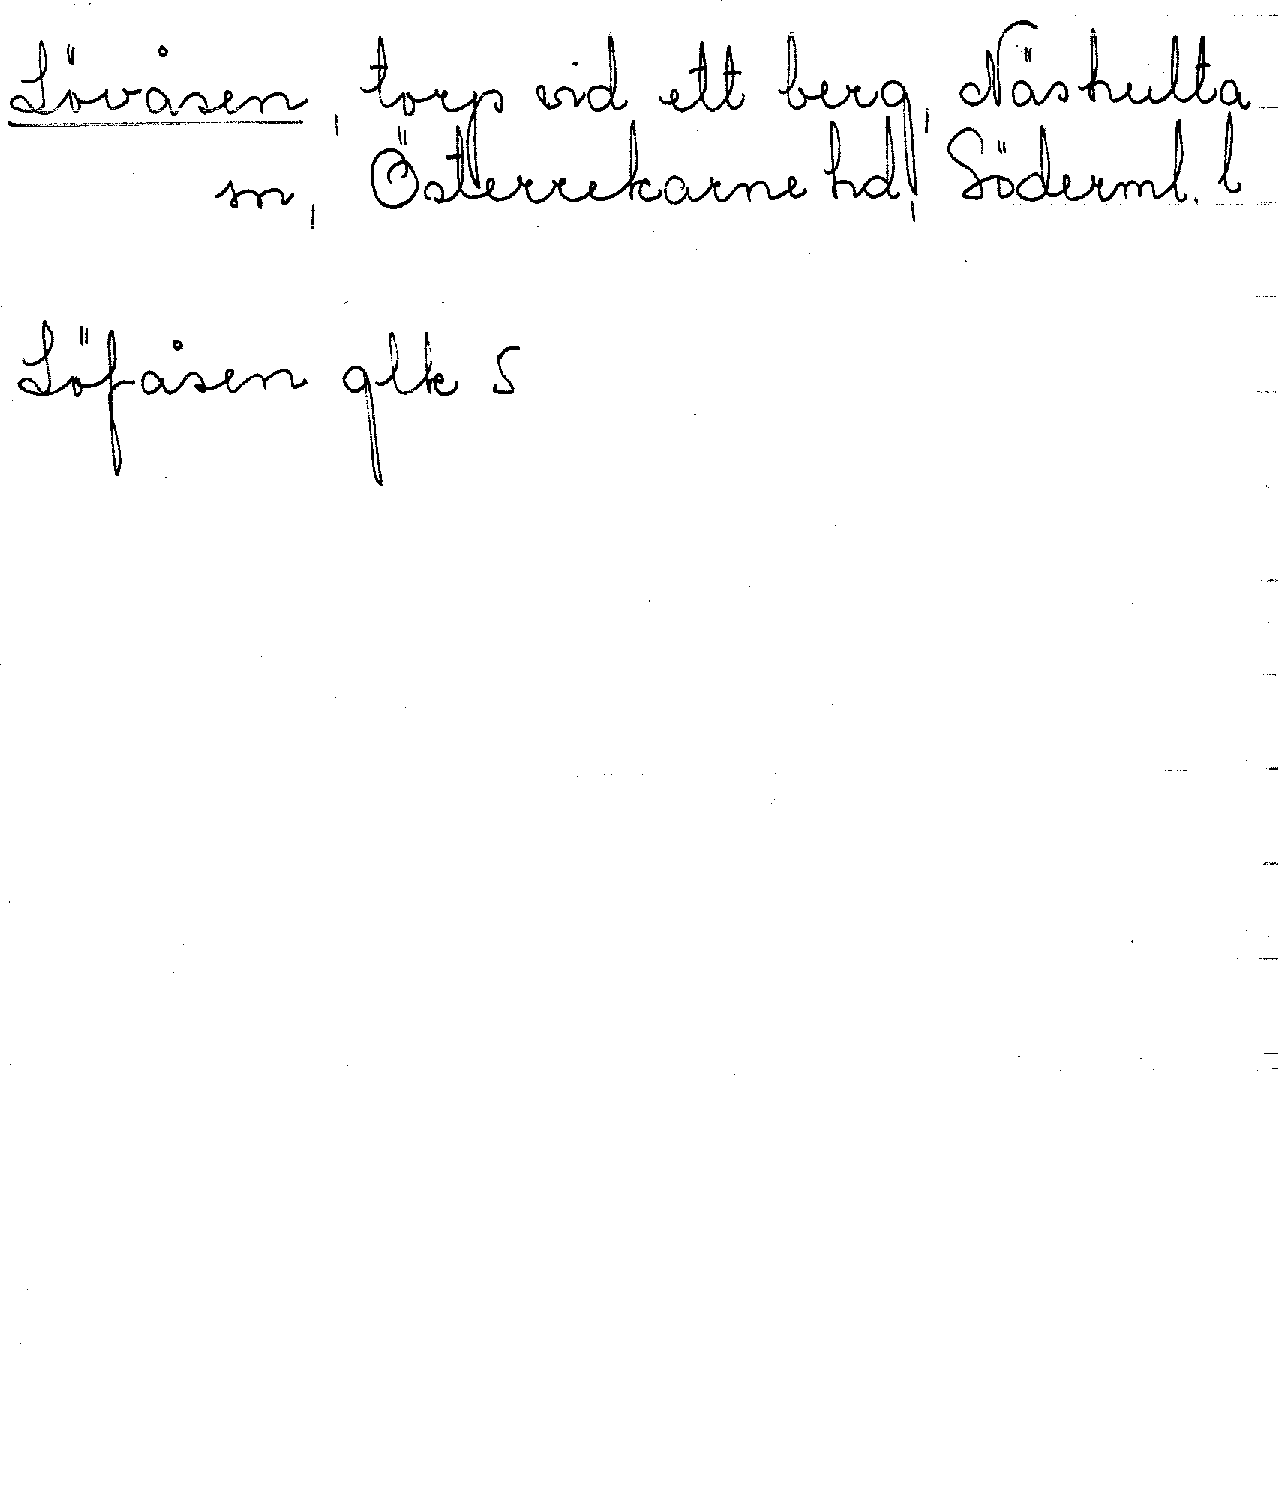 Lövåsen, torp vid ett berg, Näshulta
sn, Österrekarne hd, Söderml. l
Löfåsen glk S